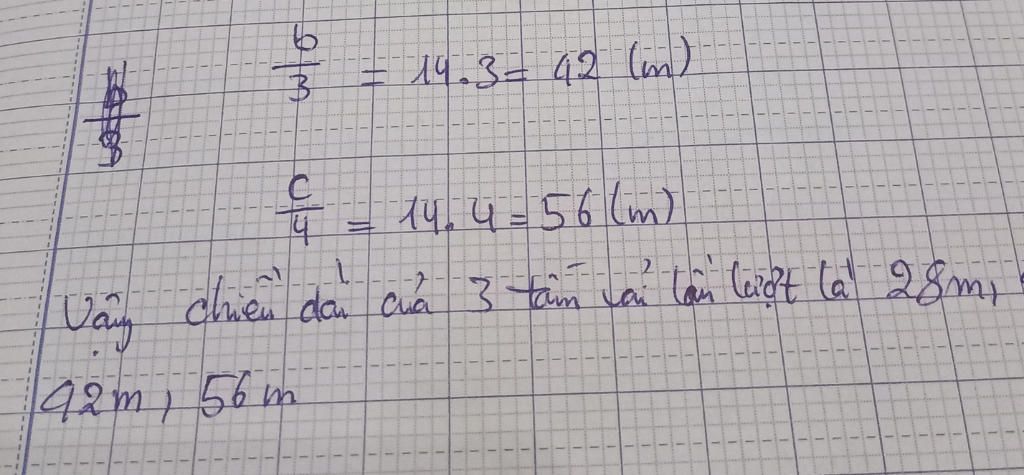 b/3 = 14.3 = 42 (m)
c/4 = 14.4 = 56 (m)
Vậy chiều dài của 3 tấm vải lần lượt là 28m,
42m, 56m